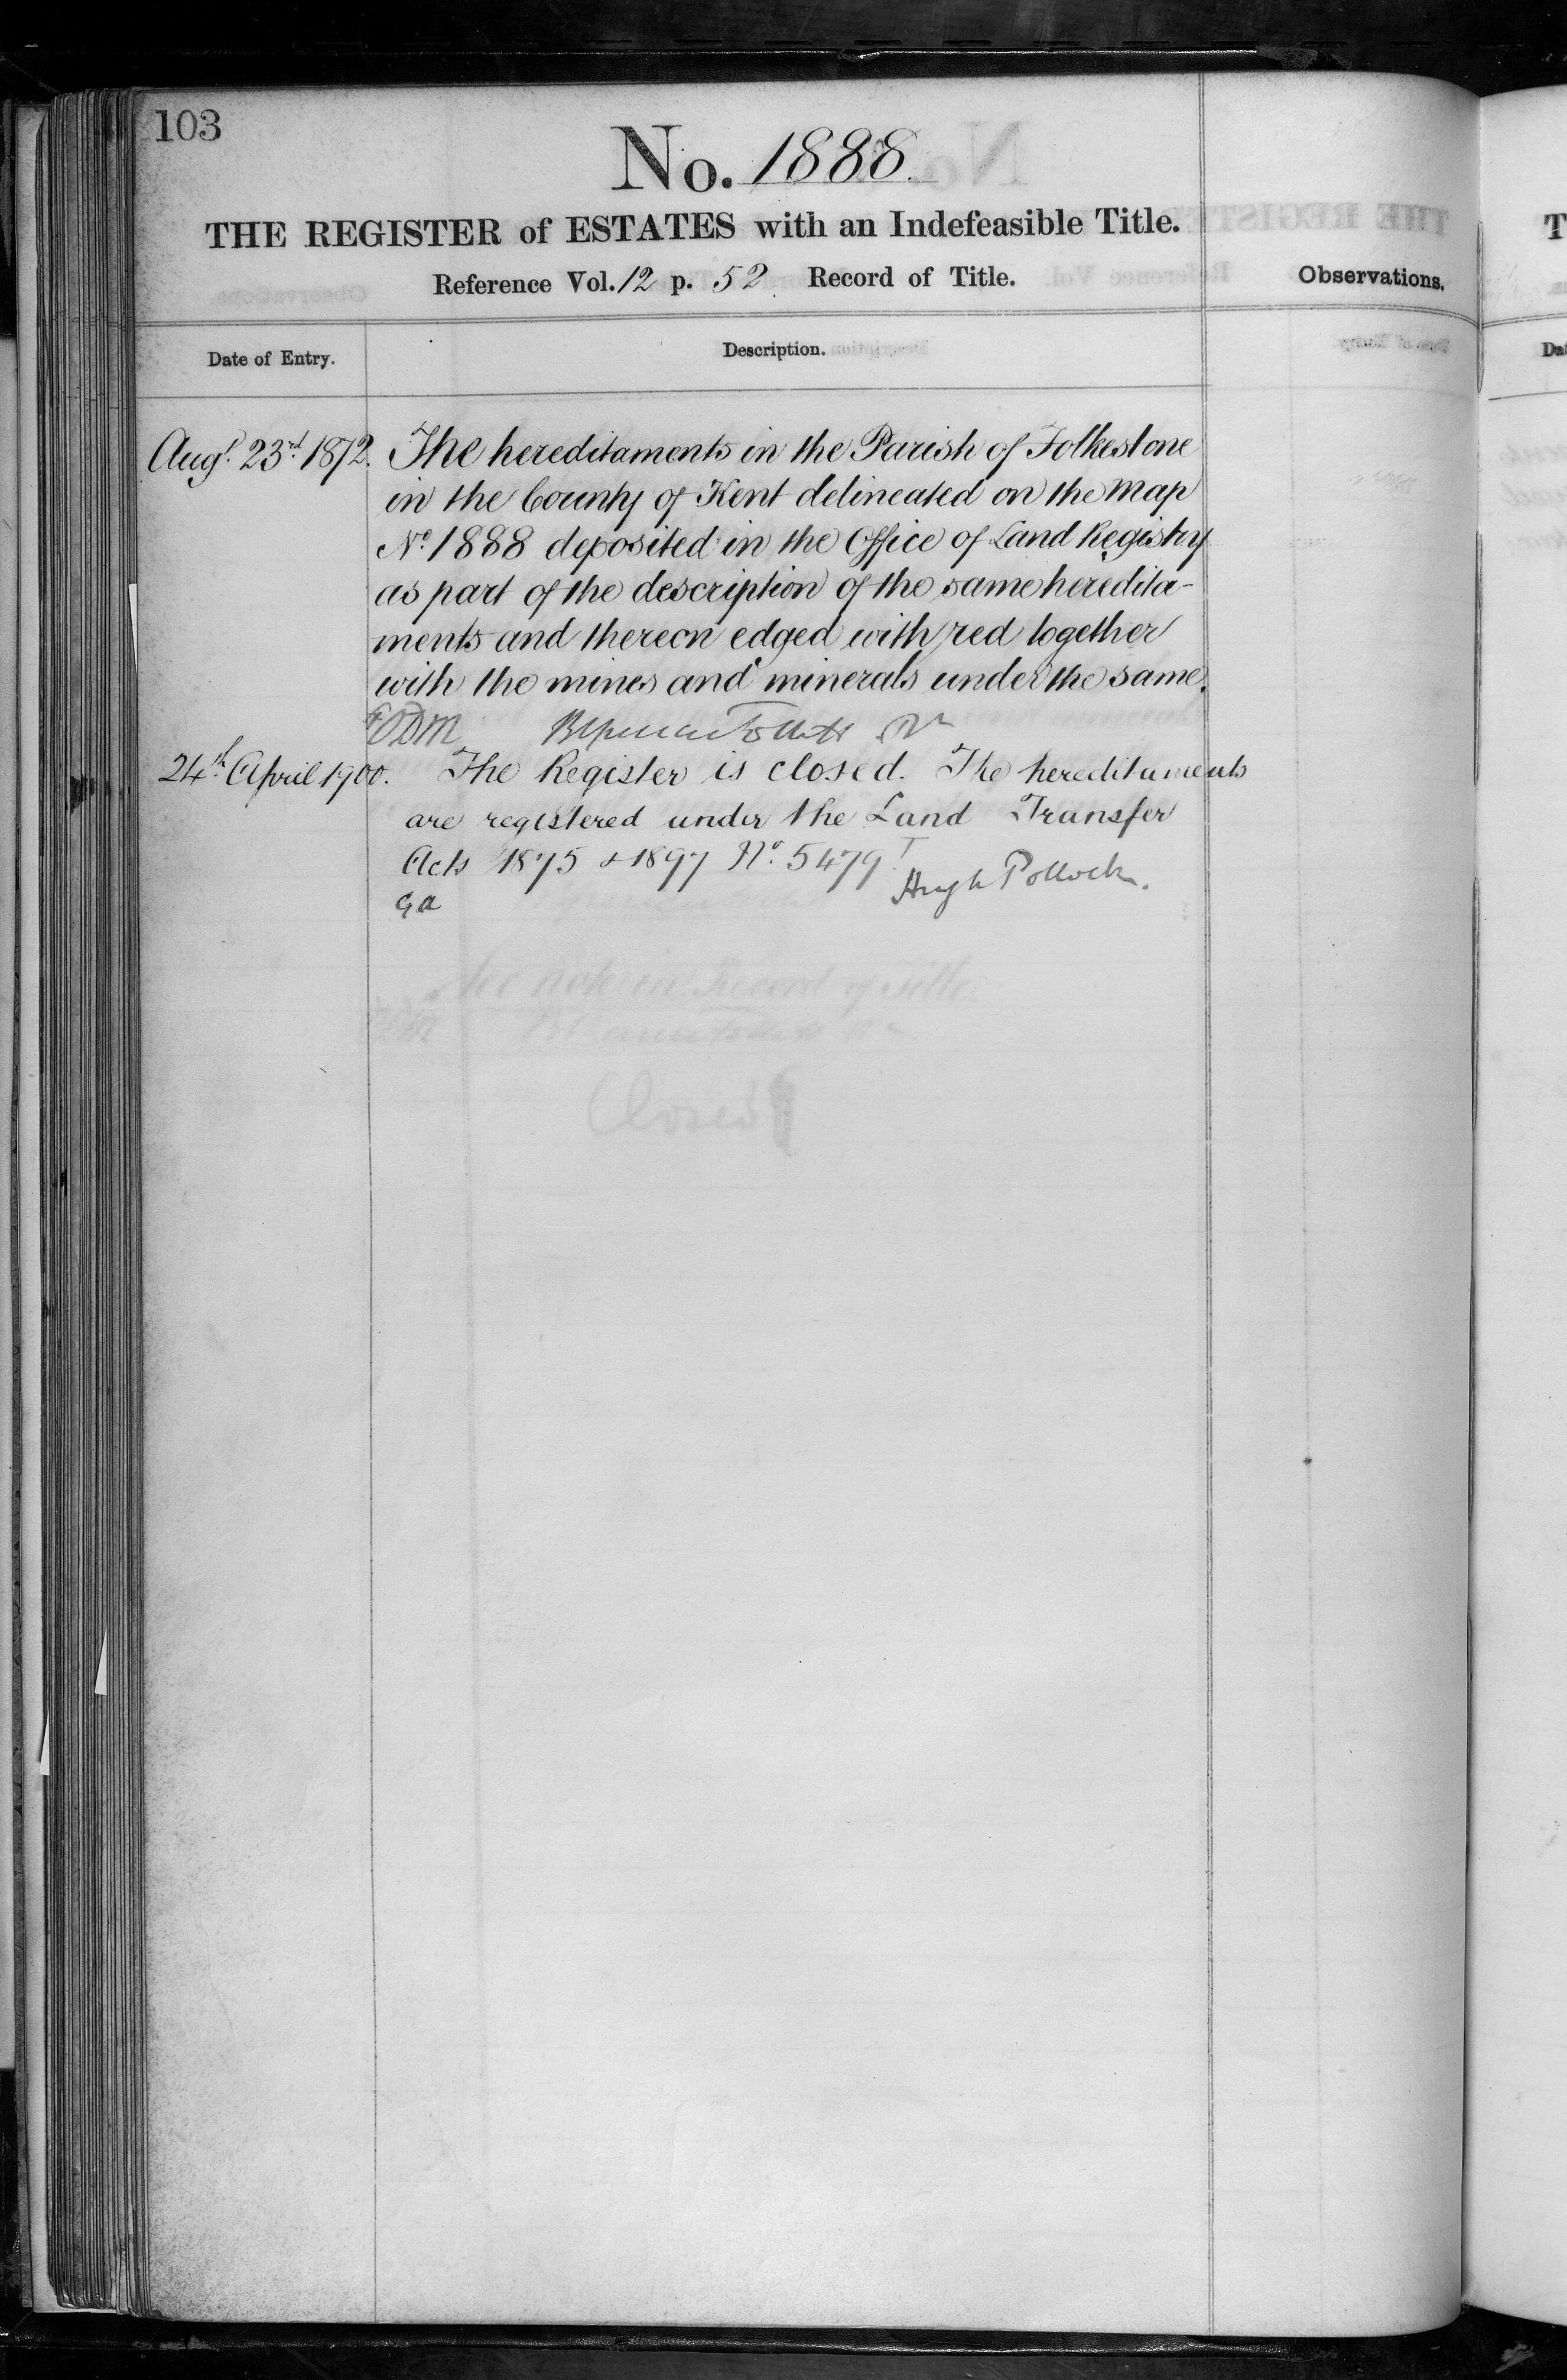 103
No. 1888.
THE REGISTER of ESTATES with an Indefeasible Title.
Reference Vol. 12 p. 52 Record of Title.
Observations.
Date of Entry.
Description.
Augt. 23rd 1872. The hereditaments in the Parish of Folkestone
in the County of Kent delineated on the Map
No. 1888 deposited in the Office of Land Registry
as part of the description of the same heredita-
ments and thereon edged with red together
with the mines and minerals under the same.
EODM
24th April 1900. The Register is closed. The hereditaments
are registered under the Land Transfer
Acts 1875 & 1897 No. 5479
Hugh Pollock.
GA